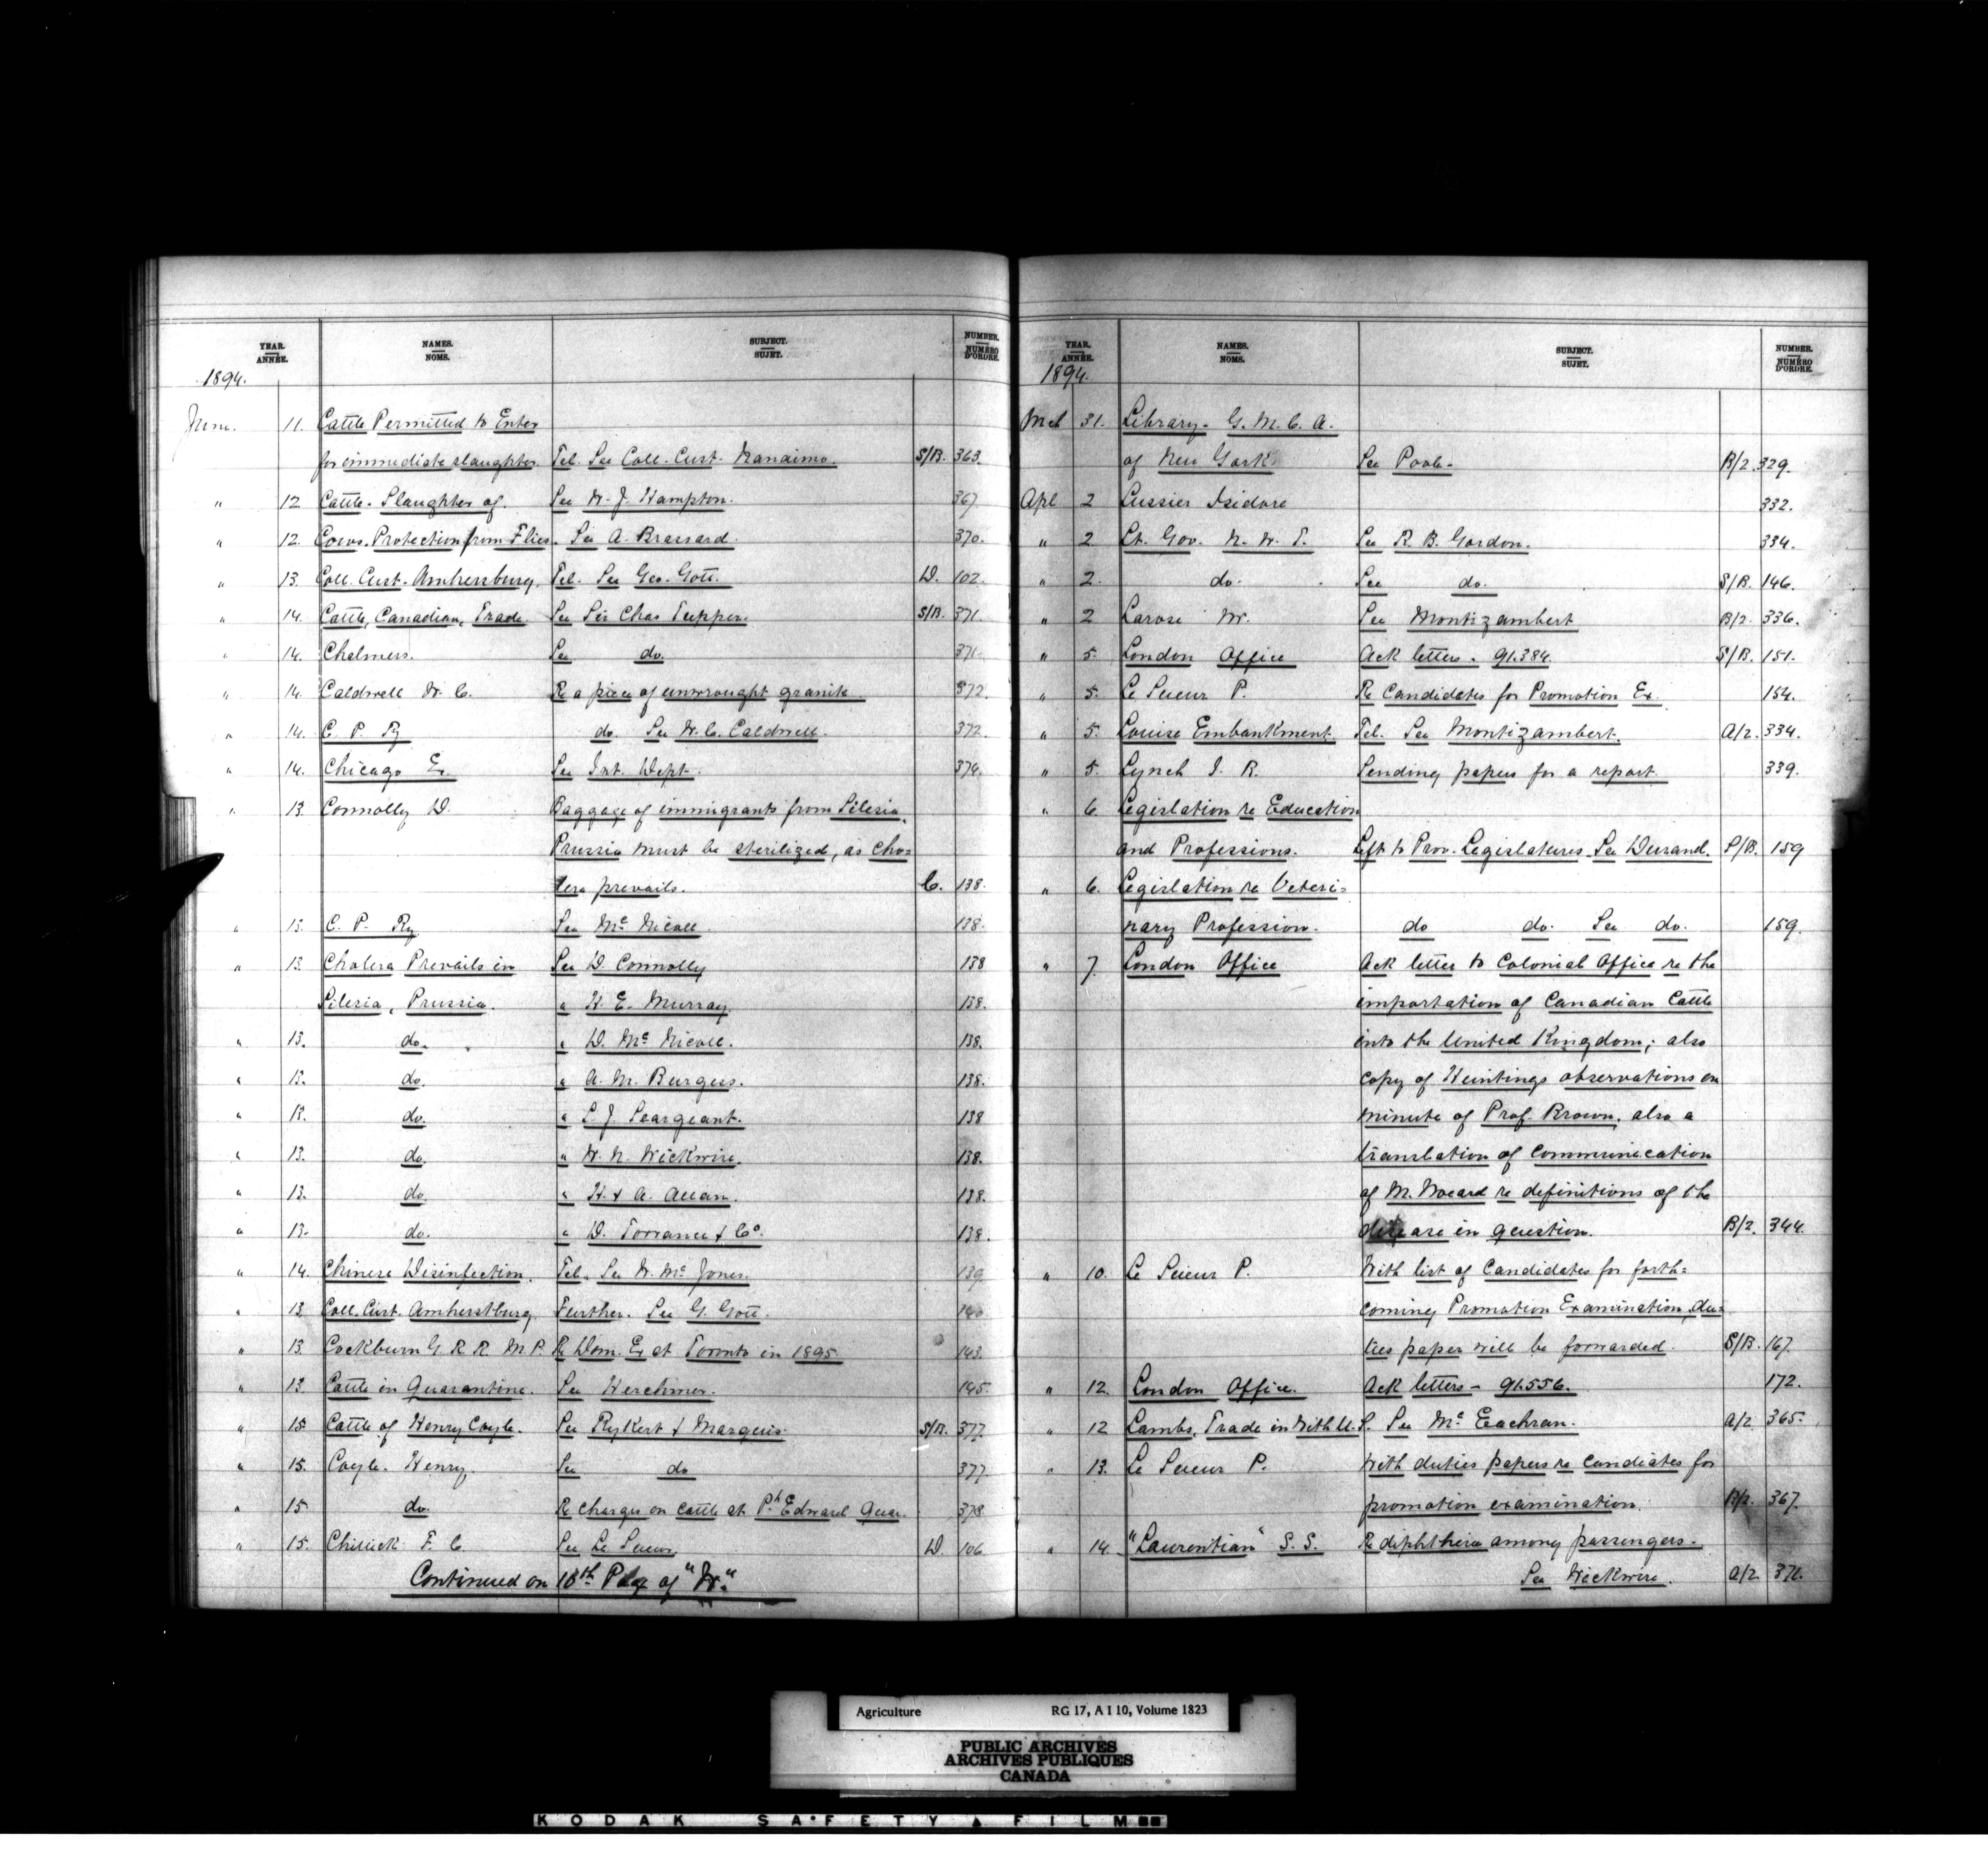 YEAR. ANNÉE. NAMES. NOMS. SUBJECT. SUJET. NUMBER. NUMÉRO D'ORDRE.
1894.
June. 11. Cattle Permitted to Enter
for immediate slaughter. Tel. See Coll. Cust. Nanaimo. S/B. 363.
" 12 Cattle. Slaughter of. See W. J. Hampton. 367.
" 12. Cows. Protection from Flies. See A. Brassard. 370.
" 13. Coll. Cust. Amhersburg. Tel. See Geo. Gott. D. 102.
" 14. Cattle, Canadian, Trade See Sir Chas Tupper. S/B. 371.
" 14. Chalmers. See do. 371.
" 14. Caldwell W. C. Re a piece of unwrought granite. 372.
" 14. C. P. Ry do. See W. C. Caldwell. 372.
" 14. Chicago Ex. See Int. Dept. 374.
" 13. Connolly D. Baggage of immigrants from Silesia,
Prussia must be sterilized, as cho=
lera prevails. C. 138.
" 13. C. P. Ry. See Mc Nicoll. 138.
" 13. Cholera Prevails in See D. Connolly 138
Silesia, Prussia. " H. E. Murray. 138.
" 13. do. " D. Mc Nicoll. 138.
" 13. do. " A. M. Burgess. 138.
" 13. do. " L. J. Seargeant. 138
" 13. do. " W. N. Wickwire. 138.
" 13. do. " H. & A. Allan. 138.
" 13. do. " D. Torrance & Co. 138.
" 14. Chinese Disinfection. Tel. See W. Mc Jones. 139
" 13 Coll. Cust. Amherstburg. Further. See G. Gott. 140
" 13. Cockburn G. R. R. M. P. Re Dom. Ex at Toronto in 1895. 143.
" 13. Cattle in Quarantine. See Herchmer. 145.
" 15 Cattle of Henry Coyle. See Rykert & Marquis. S/B. 377.
" 15. Coyle. Henry. See do 377.
" 15 do. Re Charges on cattle at Pt. Edward Quar. 378.
" 15. F. C. See Le Sueur. D. 106
Continued on 18th Page of "W."
YEAR. ANNÉE. NAMES. NOMS. SUBJECT. SUJET. NUMBER. NUMÉRO D'ORDRE.
1894.
Mch 31. Library. Y. M. C. A.
of New York See Poole. B/2. 329.
Apl 2 Lussier Isidore 332.
" 2 Lt. Gov. N. W. T. See R. B. Gordon. 334.
" 2. do. See do. S/B. 146.
" 2 Larose W. See Montizambert B/2. 336.
" 5. London Office Ack letters. 91.384. S/B. 151.
" 5. Le Sueur P. Re Candidates for Promotion Ex. 154.
" 5. Louise Embankment. Tel. See Montizambert. A/2. 334.
" 5. Lynch J. R. Sending papers for a report. 339.
" 6. Legislation re Education
and Professions. Left to Prov. Legislatures. See Durand. S/B. 159
" 6. Legislation re Veteri=
nary Profession. do do. See do. 159.
" 7. London Office Ack letter to Colonial Office re the
importation of Canadian Cattle
into the United Kingdom; also
copy of Huntings observations on
minute of Prof. Brown, also a
translation of communication
of M. Nocard re definitions of the
disease in question. B/2. 344.
" 10. Le Sueur P. With list of candidates for forth=
coming Promotion Examination, du=
ties paper will be forwarded. S/B. 167.
" 12. London Office. Ack letters - 91.556. 172.
" 12 Lambs, Trade in With U. S. See Mc Eachran. A/2 365.
" 13. Le Sueur P. With duties papers re candiates for
promotion examination. B/2. 367.
" 14. "Laurentian" S. S. Re diphtheria among passengers.
See Wickwire. A/2 371.
Agriculture RG 17, A I 10, Volume 1823
PUBLIC ARCHIVES
ARCHIVES PUBLIQUES
CANADA
KODAK SAFETY FILM